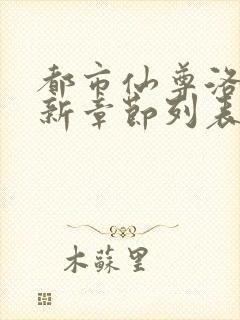 都市仙尊洛
新章節列表
木蘇里